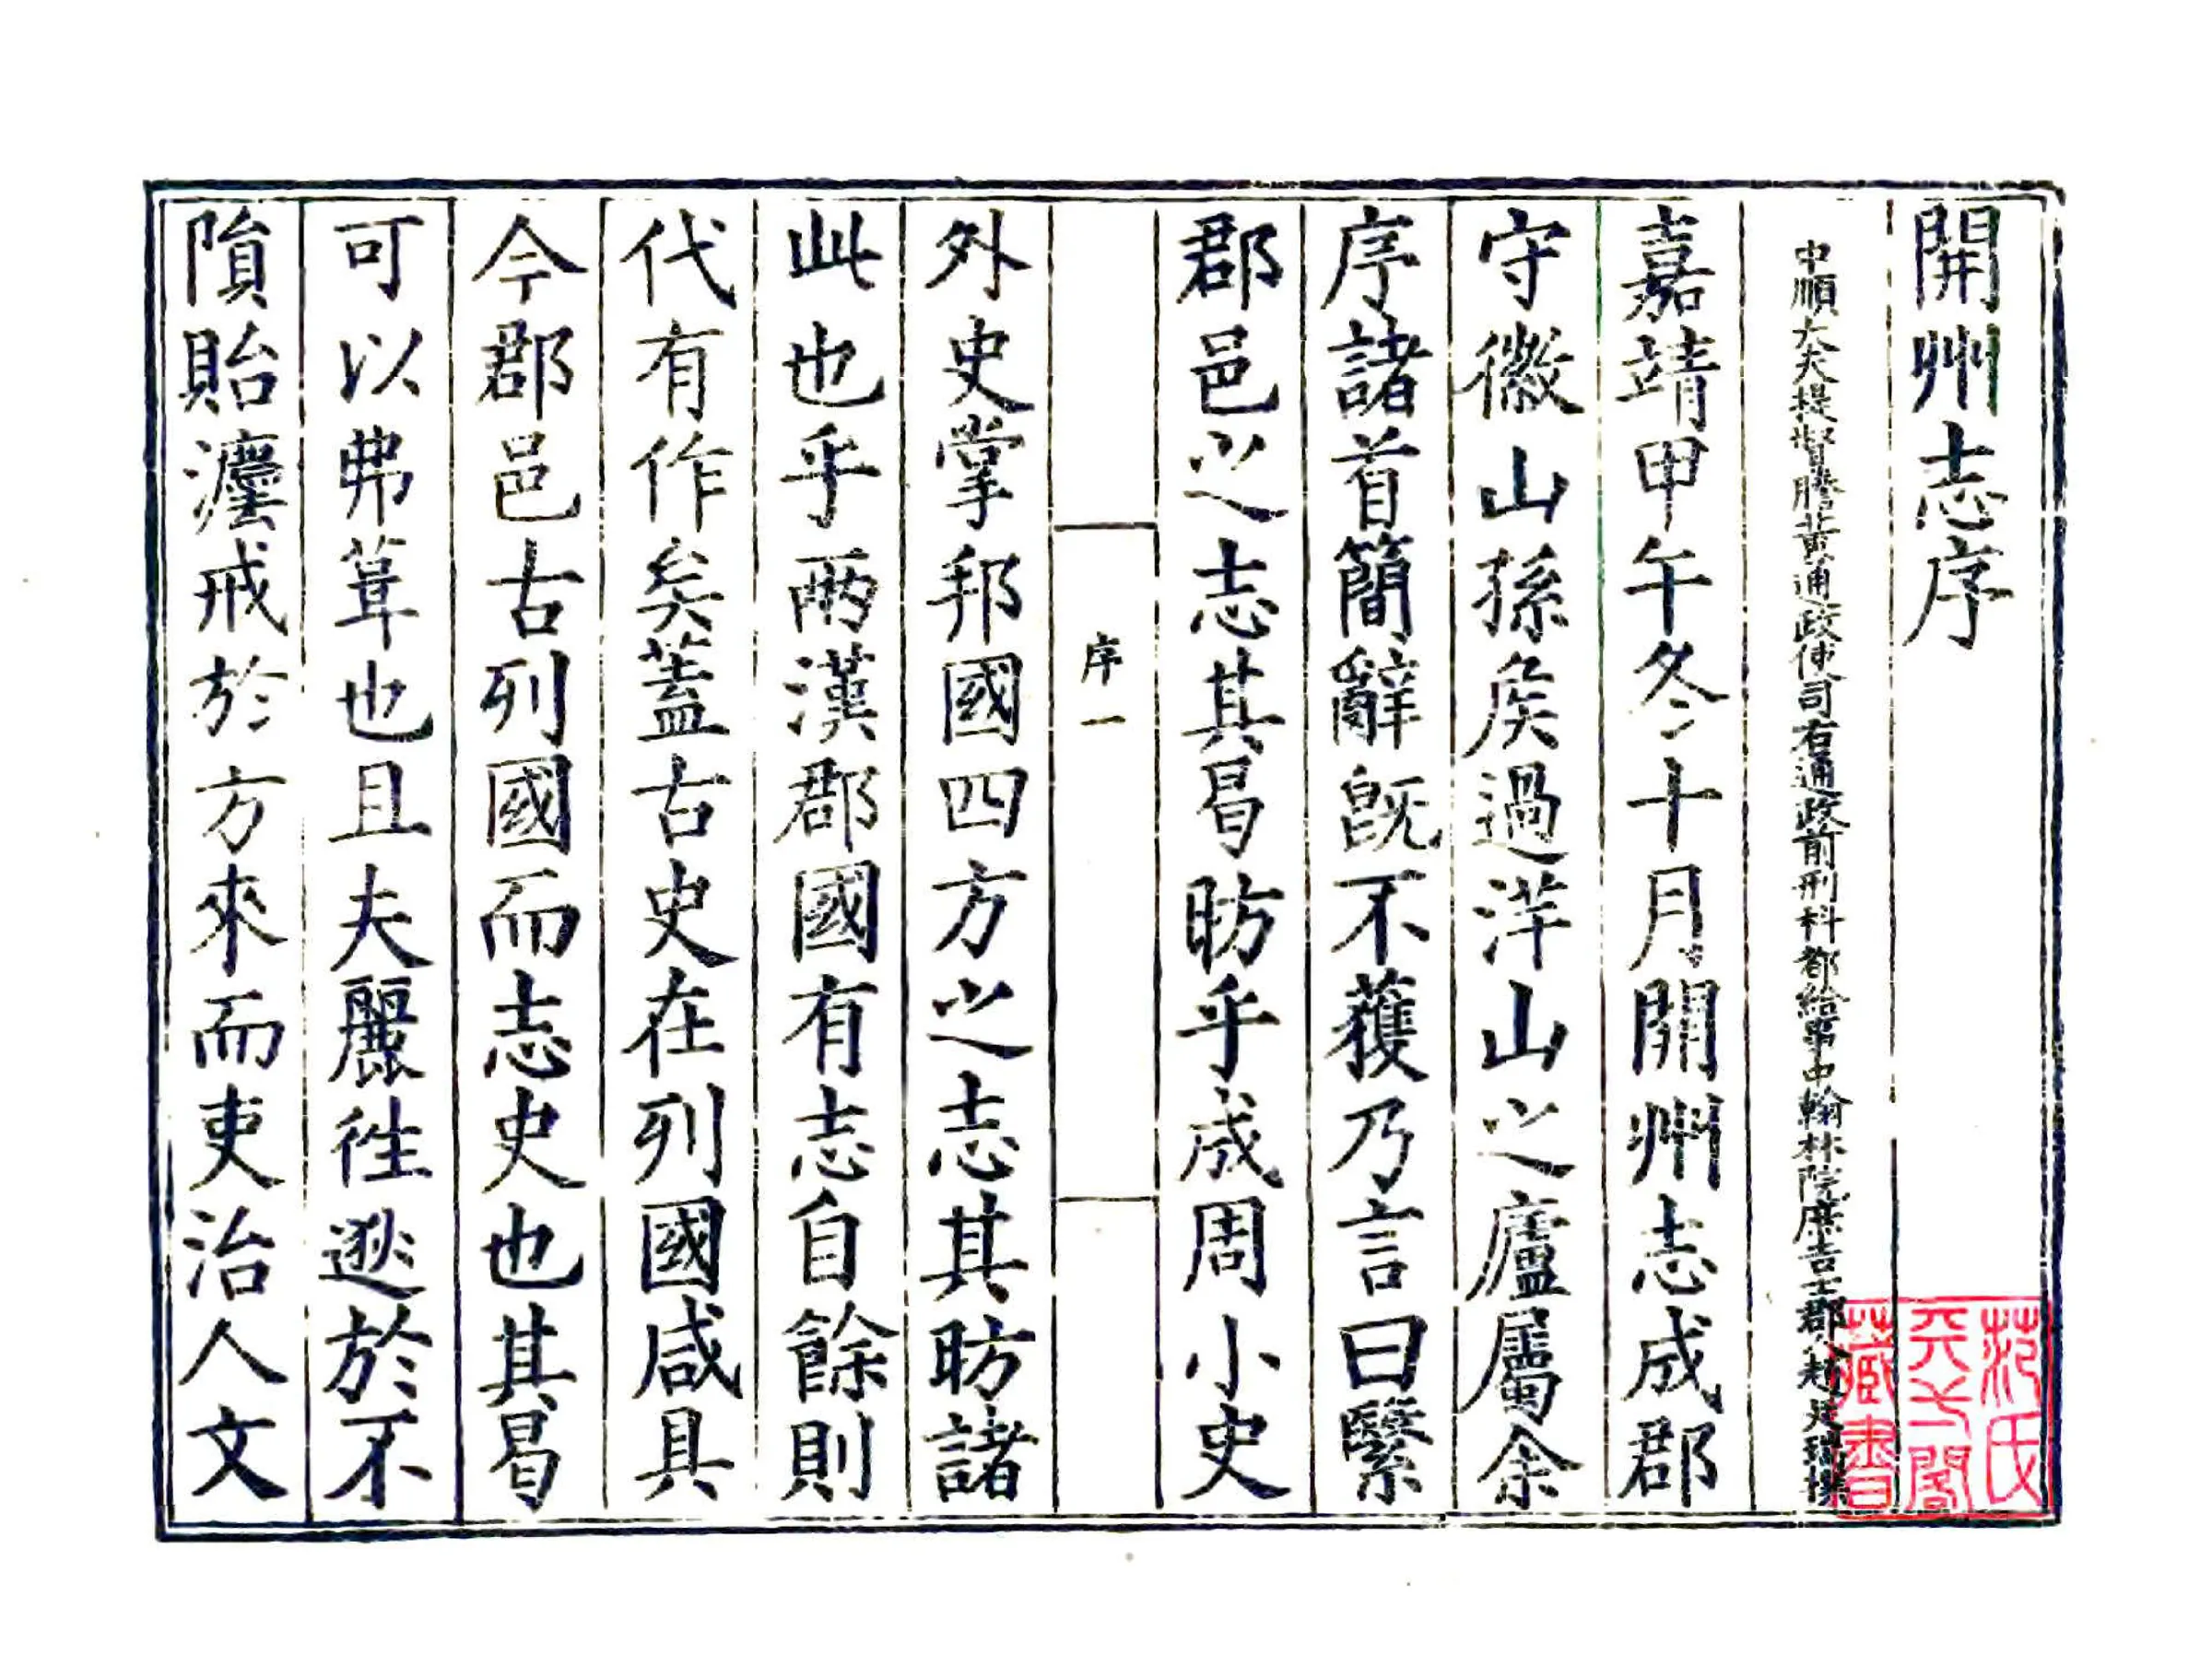 開州志序
中順大夫提督謄黃通政使司右通政前刑科都給事中翰林院庶吉士郡人趙廷瑞撰
嘉靖甲午冬十月開州志成郡
守徽山孫矦過洋山之廬屬余
序諸首簡辭旣不獲乃言曰繄
郡邑之志其曷昉乎成周小史
序一
外史掌邦國四方之志其昉諸
此也乎兩漢郡國有志自餘則
代有作矣蓋古史在列國咸具
今郡邑古列國而志史也其曷
可以弗葺也且夫麗徃逖於不
隕貽瀍戒於方來而吏治人文
范氏
天一閣
藏書